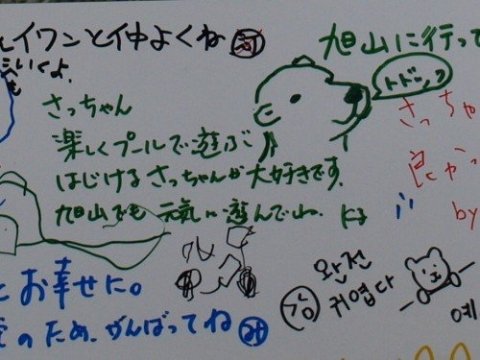 イワンと仲よくね
旭山に行って
さっちゃん
楽しくプールで遊ぶ
はじける さっちゃんが 大好きです.
旭山でも 元気に 遊んでね.
さっちゃ
良かっ
by
お幸せに。
のため、がんばってね
완전
귀엽다
예